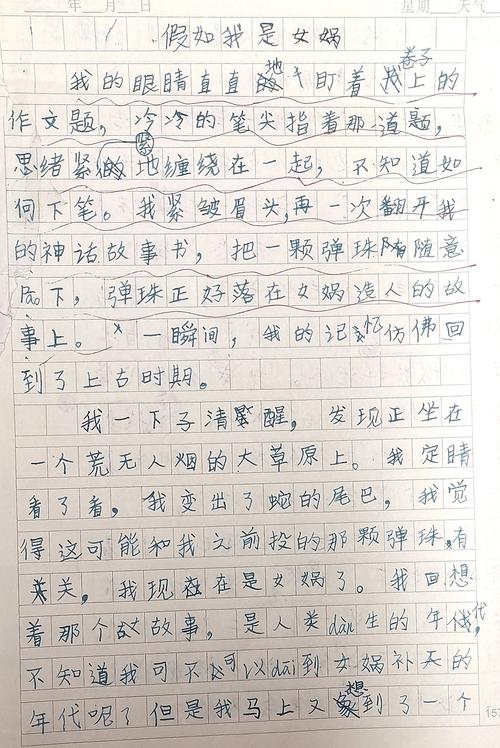 年 月 日 星期 天气
假如我是女娲
我的眼睛直直地盯着卷子上的
作文题,冷冷的笔尖指着那道题,
思绪紧紧地缠绕在一起,不知道如
何下笔。我紧皱眉头,再一次翻开我
的神话故事书,把一颗弹珠随意
下,弹珠正好落在女娲造人的故
事上。一瞬间,我的记忆仿佛回
到了上古时期。
我一下子清醒,发现正坐在
一个荒无人烟的大草原上。我定睛
看了看,我变出了蛇的尾巴,我觉
得这可能和我之前投的那颗弹珠有
关,我现在是女娲了。我回想
着那个故事,是人类dàn生的年代,
不知道我可不可以dāi到女娲补天的
年代呢?但是我马上又想到了一个